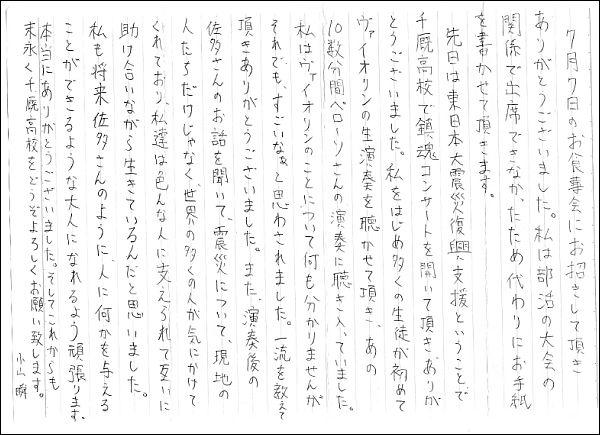 7月7日のお食事会にお招きして頂き
ありがとうございました。私は部活の大会の
関係で出席できなかったため代わりにお手紙
を書かせて頂きます。
先日は東日本大震災復興支援ということで
千厩高校で鎮魂コンサートを開いて頂きありが
とうございました。私をはじめ多くの生徒が初めて
ヴァイオリンの生演奏を聴かせて頂き、あの
10数分間ベローソさんの演奏に聴き入っていました。
私はヴァイオリンのことについて何も分かりませんが
それでも、すごいなぁと思わされました。一流を教えて
頂きありがとうございました。また、演奏後の
佐多さんのお話を聞いて、震災について、現地の
人たちだけじゃなく世界の多くの人が気にかけて
くれており、私達は色んな人に支えられて互いに
助け合いながら生きているんだと思いました。
私も将来佐多さんのように、人に何かを与える
ことができるような大人になれるよう頑張ります。
本当にありがとうございました。そしてこれからも
末永く千厩高校をどうぞよろしくお願い致します。
小山 瞬